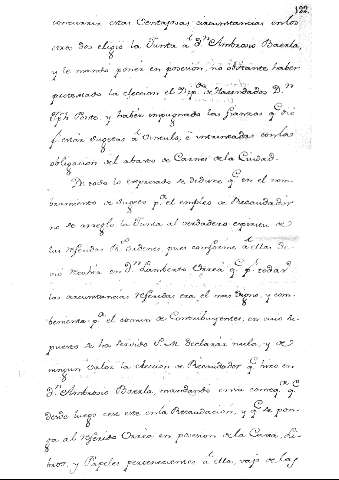 122.
concurrir estas ventajosas circunstancias en los
otros dos eligió la Junta á Dn Ambrosio Baxala,
y le mando poner en posesion, no obstante haber
protestado la eleccion el Dipdo de Hacendados Dn
Jph Ponte, y haber impugnado las fianzas qe dió
pr estár sugetas á Vinculo, é intrincadas con la
obligacion del abasto de Carnes de la Ciudad.
De todo lo expresado se deduce qe en el nom-
bramiento de Sugeto pa el empleo de Recaudador
no se arregló la Junta al verdadero espiritu de
las referidas Rs Ordenes, pues conforme á ellas de-
vió recaer en Dn Lamberto Orrea qe pr todas
las circunstancias referidas era el mas digno, y com-
beniente pa el comun de Contribuyentes; en cuio su-
puesto se ha servido S. M. declarar nula, y de
ningun valor la eleccion de Recaudador qe hizo en
Dn Ambrosio Baxala, mandando en su conseqa qe
desde luego cese este en la Recaudacion, y qe se pon-
ga al referido Orrea en posesion de la Caxa, Li-
bros, y Papeles pertenecientes á ella, vajo de las